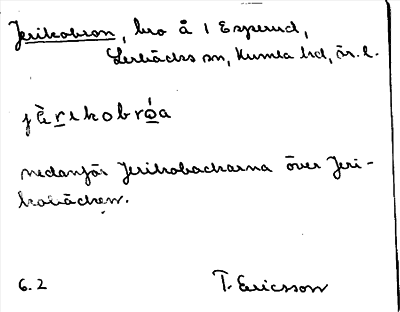 Jerikobron, bro å i Esperud,
Lerbäcks sn, Kumla hd, Ör. l.
jè̀rikobróa
nedanför Jerikobackarna över Jeri-
kobäcken.
6.2 T. Ericsson